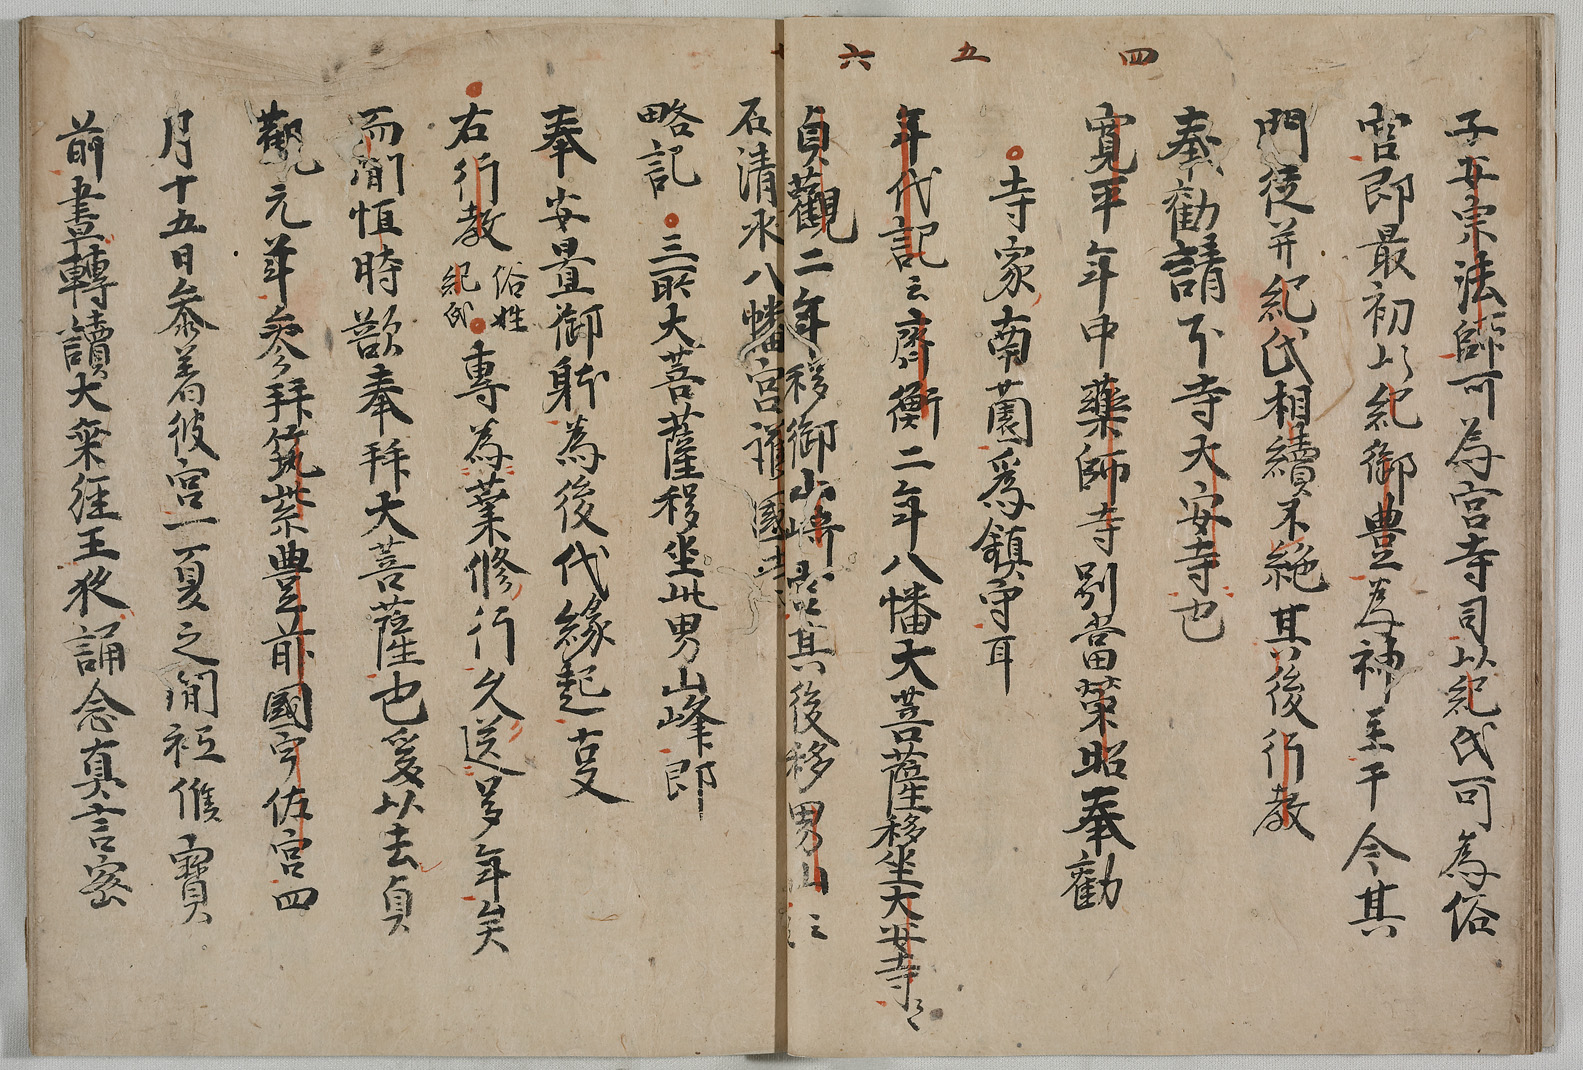 四 五 六
子安宗法師可為宮寺司以紀氏可為俗
官即最初以紀御豊為神主于今其
門徒并紀氏相續不絶其後行教
奉勧請下寺大安寺也
寛平年中藥師寺別當榮昭奉勧
寺家南薗為鎮守耳
年代記云齊衡二年八幡大菩薩移坐大安寺云々
貞觀二年移御山崎其後移男山云々
石清水八幡宮護國寺
略記三所大菩薩移坐此男山峰即
奉安置御躰為後代縁起文
右行教俗姓紀氏專為業修行久送多年矣
而間恒時欲奉拜大菩薩也爰以去貞
觀元年参拜筑紫豊前國宇佐宮四
月十五日参着彼宮一夏之間祗候寶
前晝轉讀大乗経王夜誦念真言密